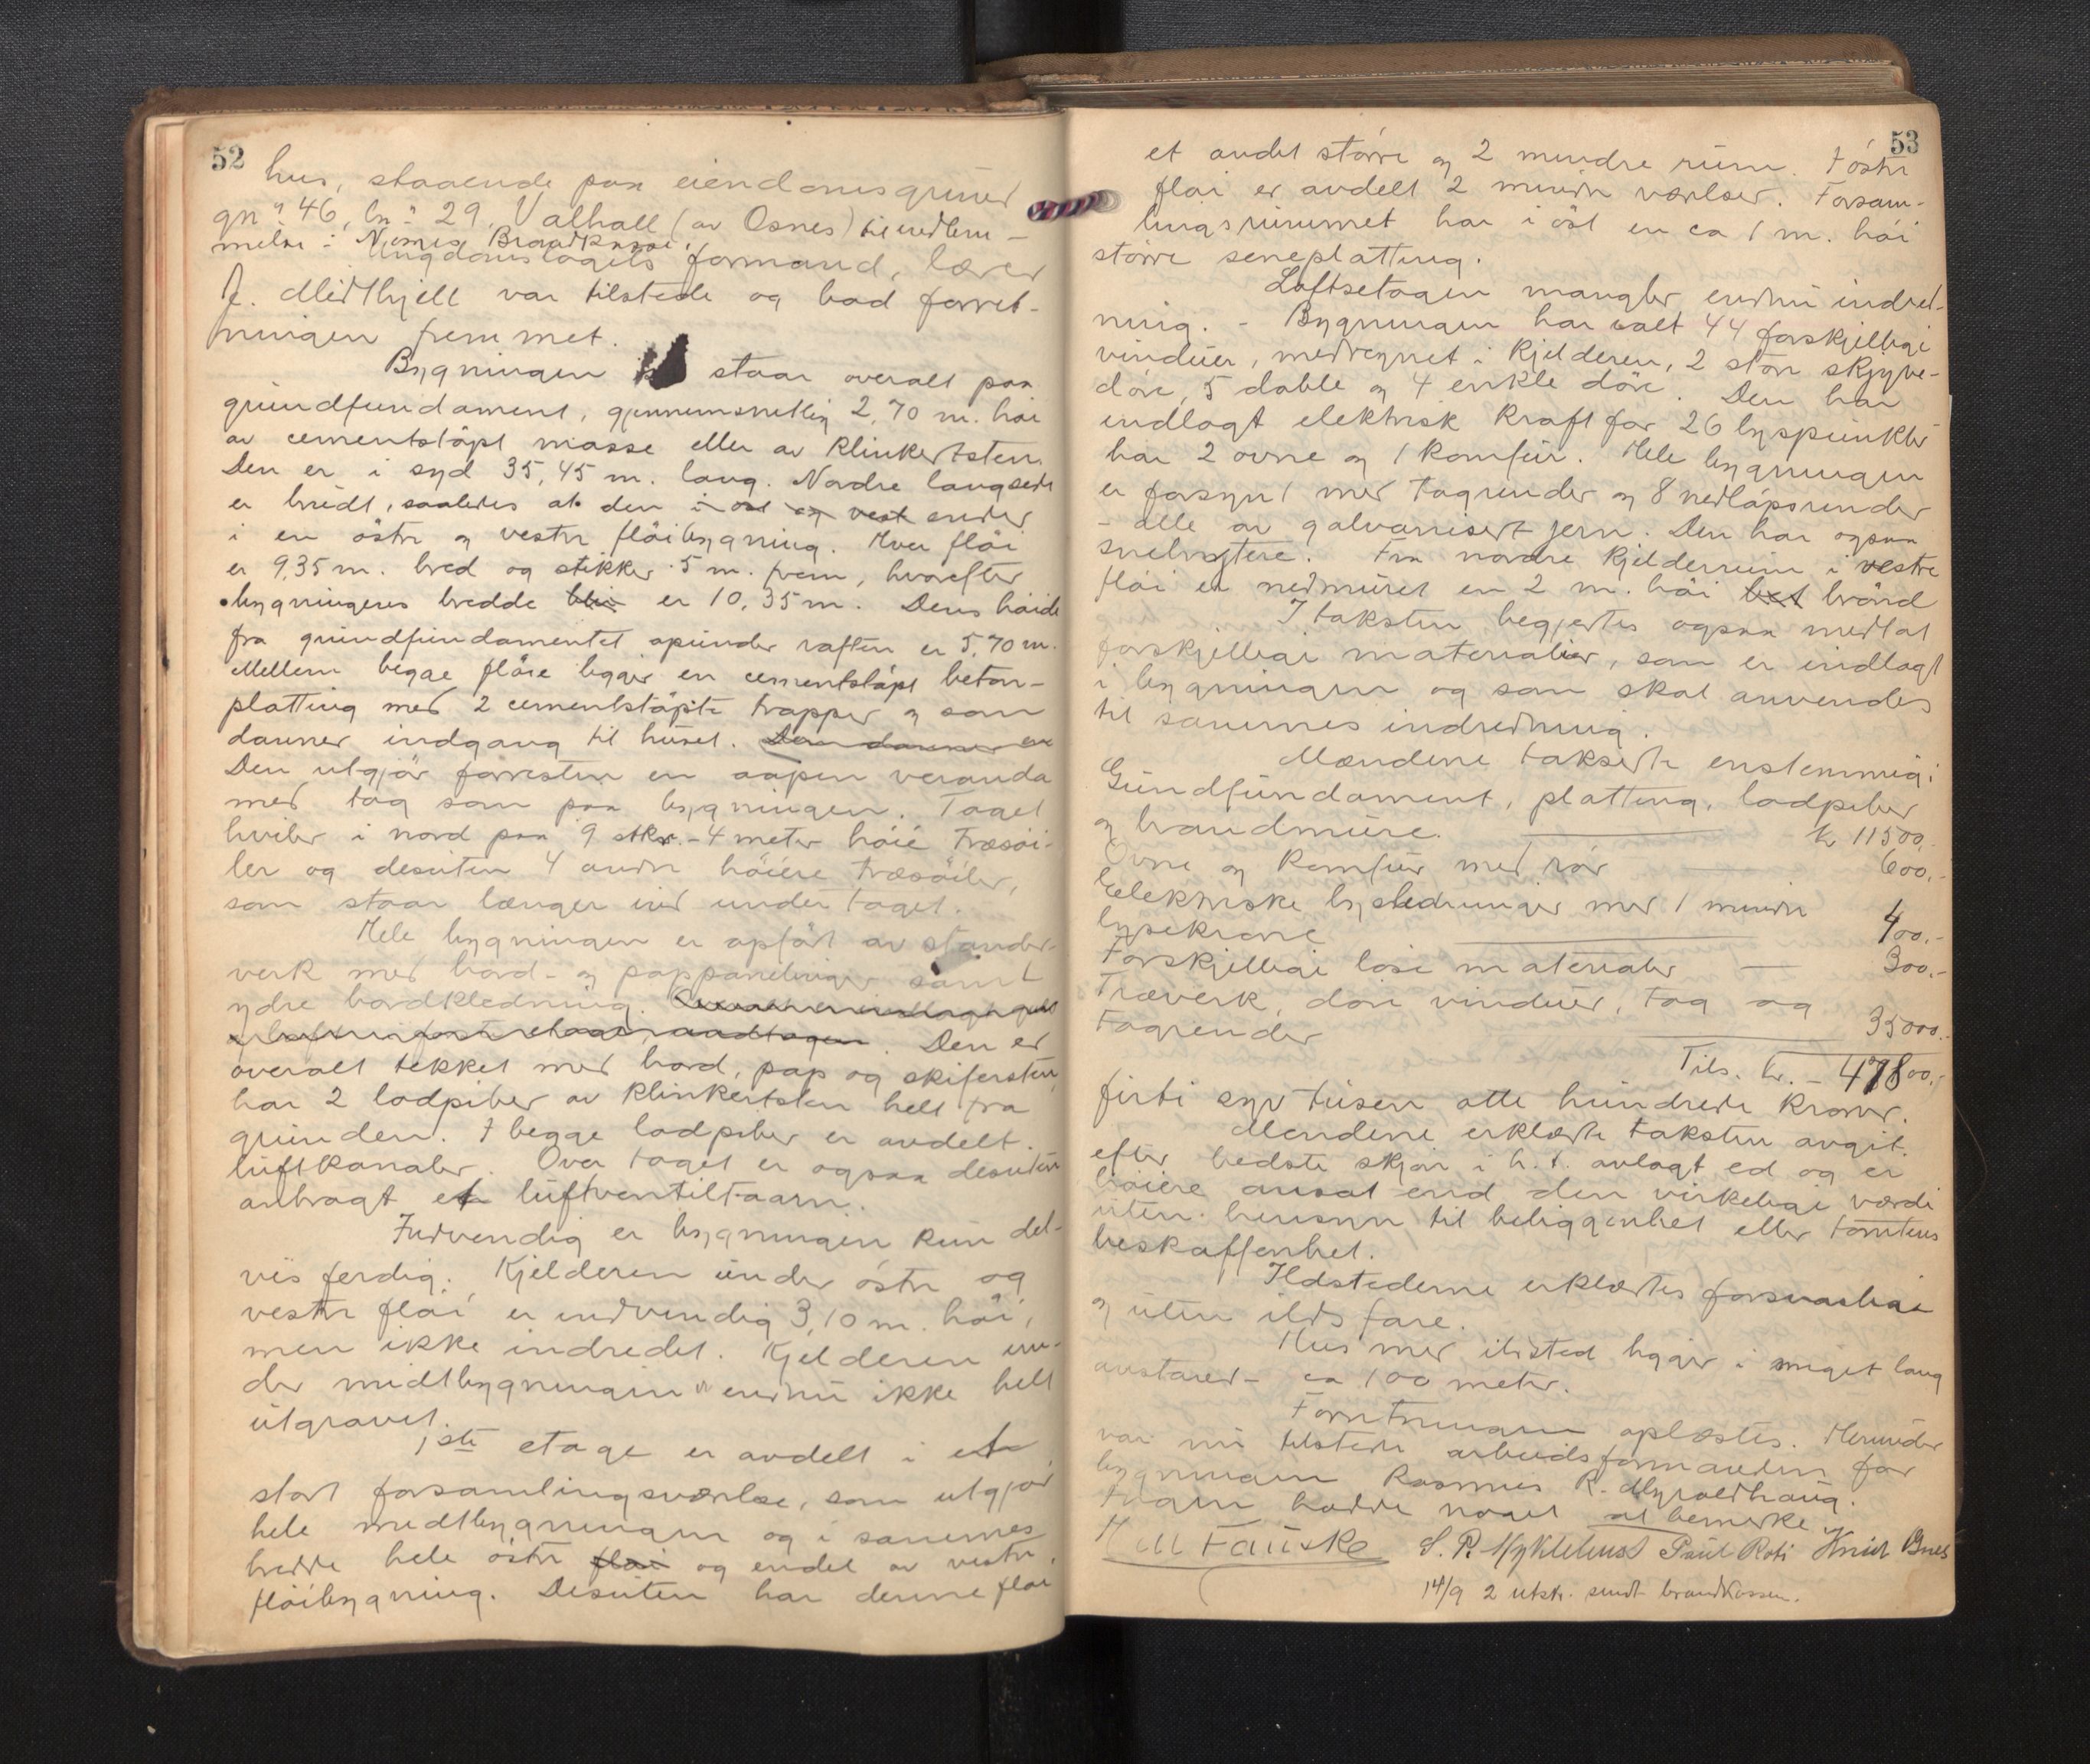 52
hus, staaende paa eiendomsgrund
gn.r 46, bn.r 29, Valhall (av Osnes) til indlem-
melse i Norges Brandkasse.
Ungdomslagets formand, lærer
J. Midthjell var tilstede og bad forret-
ningen fremmet.
Bygningen staar overalt paa
grundfundament, gjennemsnitlig 2,70 m. høi
av cementstøpt masse eller av klinkertsten.
Den er i syd 35,45 m. lang. Nordre langside
er brudt, saaledes at den i øst og vest ender
i en østre og vestre fløibygning. Hver fløi
er 9,35 m. bred og stikker 5 m. frem, hvorefter
bygningens bredde blir er 10,35 m. Dens høide
fra grundfundamentet opunder raften er 5,70 m.
Mellem begge fløie ligger en cementstøpt beton-
platting med 2 cementstøpte trapper og som
danner indgang til huset. Den danner en
Den utgjør forresten en aapen veranda
med tag som paa bygningen. Taget
hviler i nord paa 9 stkr. - 4 meter høie træsøi-
ler og desuten 4 andre høiere træsøiler,
som staar længer ind under taget.
Hele bygningen er opført av stender-
verk med bord- og pappanelinger samt
ydre bordklædning. Den er
overalt tekket med bord, pap og skifersten,
har 2 lodpiber av klinkertsten helt fra
grunden. I begge lodpiber er avdelt
luftkanaler. Over taget er ogsaa desuten
anbragt et luftventiltaarn.
Indvendig er bygningen kun del-
vis ferdig. Kjelderen under østre og
vestre fløi er indvendig 3,10 m. høi,
men ikke indredet. Kjelderen un-
der midtbygningen er endnu ikke helt
utgravet.
1ste etage er avdelt i et
stort forsamlingsværelse, som utgjør
hele midtbygningen og i sammes
bredde hele østre fløi og endel av vestre
fløibygning. Desuten har denne fløi
53
et andet større og 2 mindre rum. I østre
fløi er avdelt 2 mindre værelser. Forsam-
lingsrummet har i øst en ca 1 m. høi
større seneplatting.
Loftsetagen mangler endnu indred-
ning. - Bygningen har ialt 44 forskjellige
vinduer, medregnet i kjelderen, 2 store skyve-
døre, 5 doble og 4 enkle døre. Den har
indlagt elektrisk kraft for 26 lyspunkter
har 2 ovne og 1 komfur. Hele bygningen
er forsynt med tagrender og 8 nedløpsrender
- alle av galvanisert jern. Den har ogsaa
snebrytere. Fra nordre kjelderrum i vestre
fløi er nedmuret en 2 m. høi brønd
I taksten begjertes ogsaa medtat
forskjellige materialier, som er indlagt
i bygningen og som skal anvendes
til sammes indredning.
Mændene takserte enstemmig:
Gundfundament, platting, lodpiber
og brandmure. kr 11500,-
Ovne og komfur med rør 600,-
Elektriske lysledninger med 1 mindre
lysekrone 400,-
Forskjellige løse materialer 300,-
Træverk, døre vinduer, tag og
tagrender 35000,-
Tils. kr. - 47800,-
firti syv tusen otte hundrede kroner.
Mendene erklærte taksten avgit
efter bedste skjøn i h.t. avlagt ed og er
høiere ansat end den virkelige værdi
uten hensyn til beliggenhet eller tomtens
beskaffenhet.
Ildstederne erklærtes forsvarlige
og uten ildsfare.
Hus med ildsted ligger i meget lang
avstand - ca 100 meter.
Forretningen oplæstes. Herunder
var nu tilstede arbeidsformanden for
bygningen Rasmus R. Myroldhaug.
Ingen hadde noget at bemerke.
Fauske S. R. Myklebust Paul Roti Knut Osnes
14/9 2 utskr. sendt brandkassen.